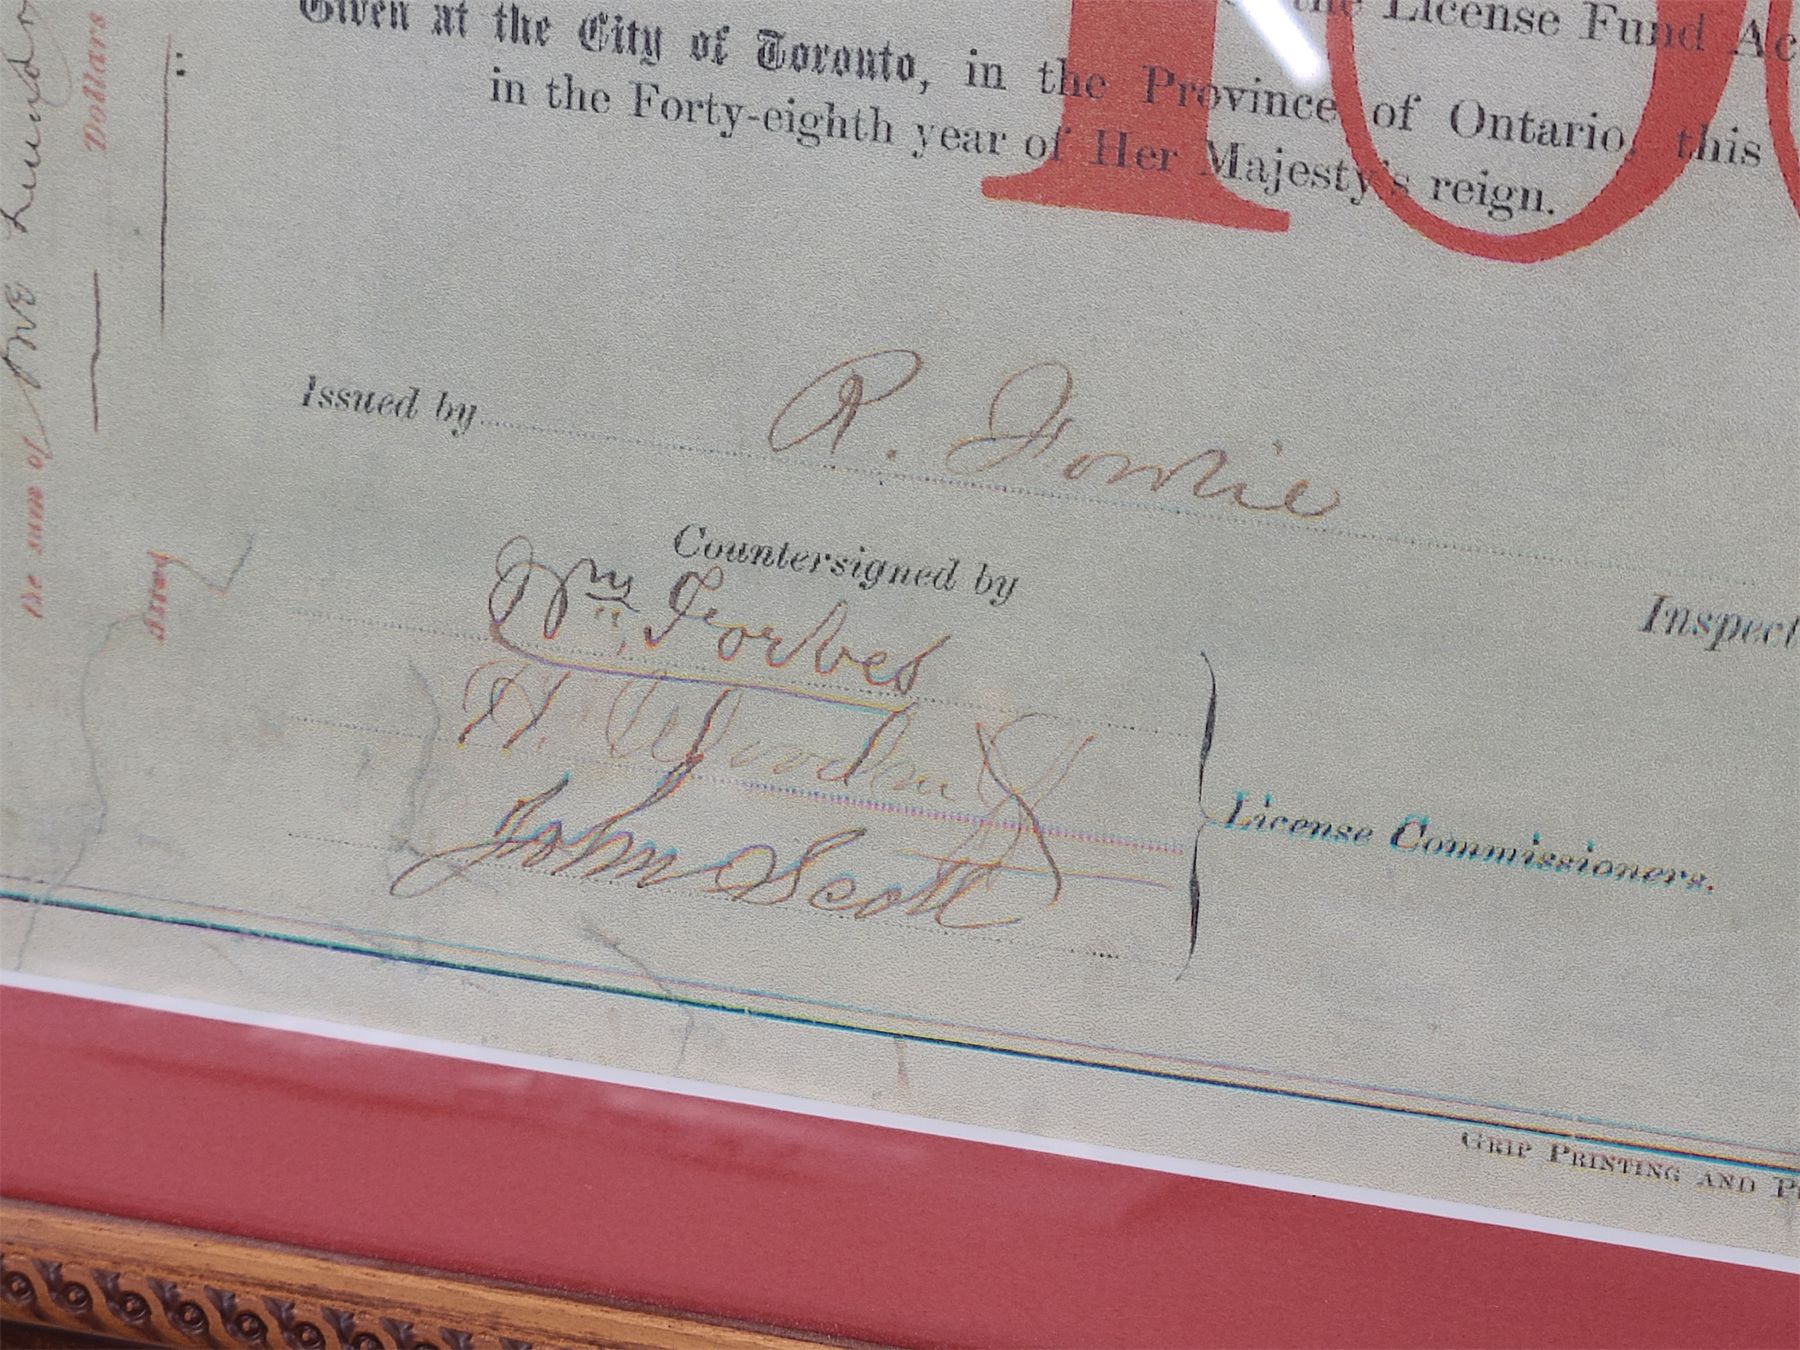 the License Fund Ac
Given at the City of Toronto, in the Province of Ontario, this
in the Forty-eighth year of Her Majesty's reign.
100
Issued by R. Fowlie
Inspect
Countersigned by
Wm. Forbes
H.
John Scott
License Commissioners.
GRIP PRINTING AND P
the sum of One Hundr
Dollars